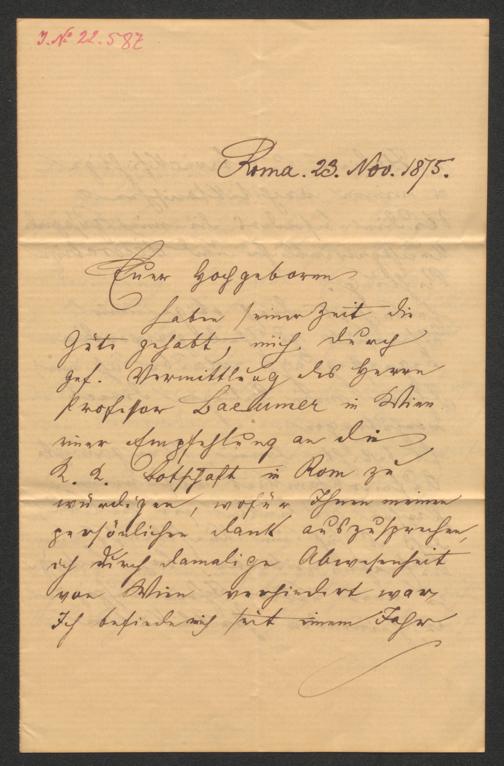 J. No 22.587
Roma. 23. Nov. 1875.
Euer Hochgeboren
haben seiner Zeit die
Güte gehabt, mich durch
gef. Vermittlung des Herrn
Profeſsor Laemmer in Wien
einer Empfehlung an die
K. K. Botschaft in Rom zu
würdigen, wofür Ihnen meinen
persönlichen Dank auszusprechen,
ich durch damalige Abwesenheit
von Wien verhindert war.
Ich befinde mich seit einem Jahr